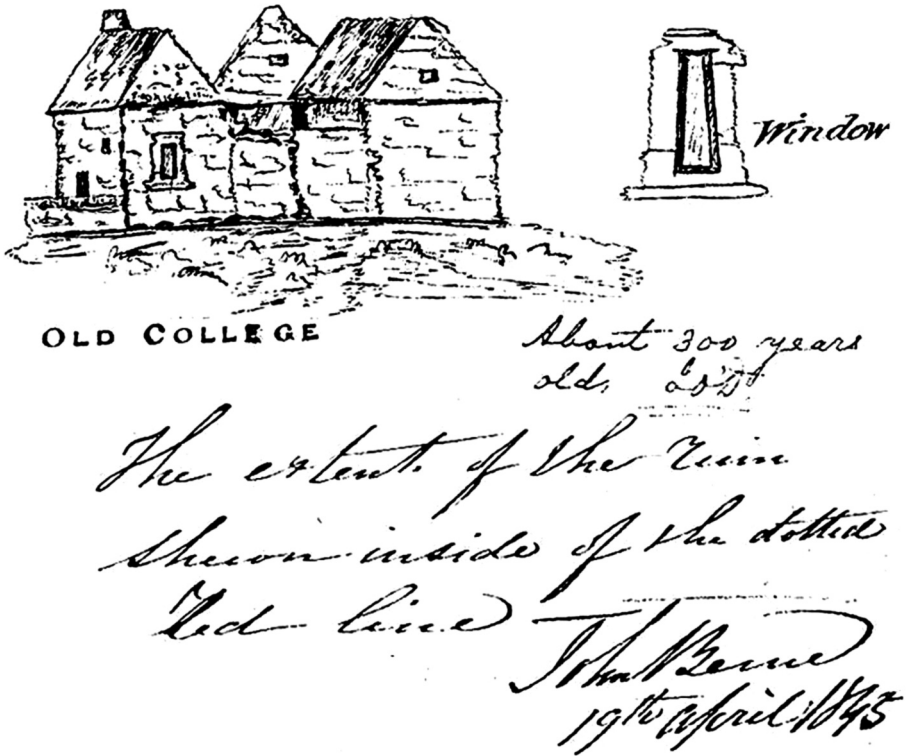 Window
OLD COLLEGE
About 300 years
old,
The extent of the ruin
shewn inside of the dotted
Red line
John
19th April 1845